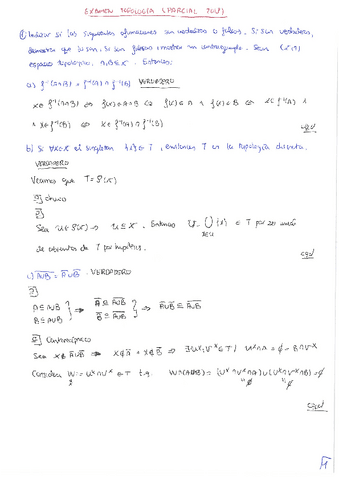 EXAMEN TOPOLOGÍA (PARCIAL 2018)
① Indicar si las siguientes afirmaciones son verdaderas o falsas. Si son verdaderas,
demuestra que si son, si son falsas mostrar un contraejemplo. Sean (X,T)
espacio topológico, A,B⊆X. Entonces:
a) f⁻¹(A∩B) = f⁻¹(A) ∩ f⁻¹(B) VERDADERO
x∈f⁻¹(A∩B) ⇔ f(x)∈A∩B ⇔ f(x)∈A ∧ f(x)∈B ⇔ x∈f⁻¹(A) ∧
∧ x∈f⁻¹(B) ⇔ x∈f⁻¹(A)∩f⁻¹(B)
cqd
b) Si ∀x∈X el singleton {x}∈T, entonces T es la topología discreta.
VERDADERO
Veamos que T=P(X)
⊆ obvio
⊇
Sea U∈P(X) ⇒ U⊆X. Entonces U=⋃{x} ∈ T por ser unión
x∈U
de abiertos de T por hipótesis.
cqd
c) A∪B = A∪B. VERDADERO
⊇
A⊆A∪B
B⊆A∪B
⇒ A⊆A∪B
B⊆A∪B
⇒ A∪B⊆A∪B
⊆ Contrarrecíproco
Sea x∉A∪B ⇒ x∉A ∧ x∉B ⇒ ∃Uˣ,Vˣ∈T / Uˣ∩A=∅=B∩Vˣ
Considero W=Uˣ∩Vˣ∈T t.q. W∩(A∪B)=(Uˣ∩Vˣ∩A)∪(Uˣ∩Vˣ∩B)=∅
cqd